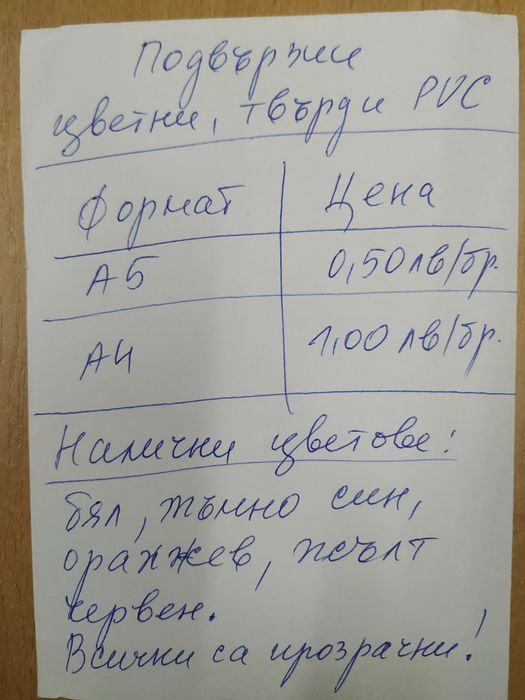 Подвързии
цветни, твърди PVC
Формат Цена
А5 0,50лв/бр.
А4 1,00лв/бр.
Налични цветове:
бял, тъмно син,
оранжев, жълт
червен.
Всички са прозрачни!